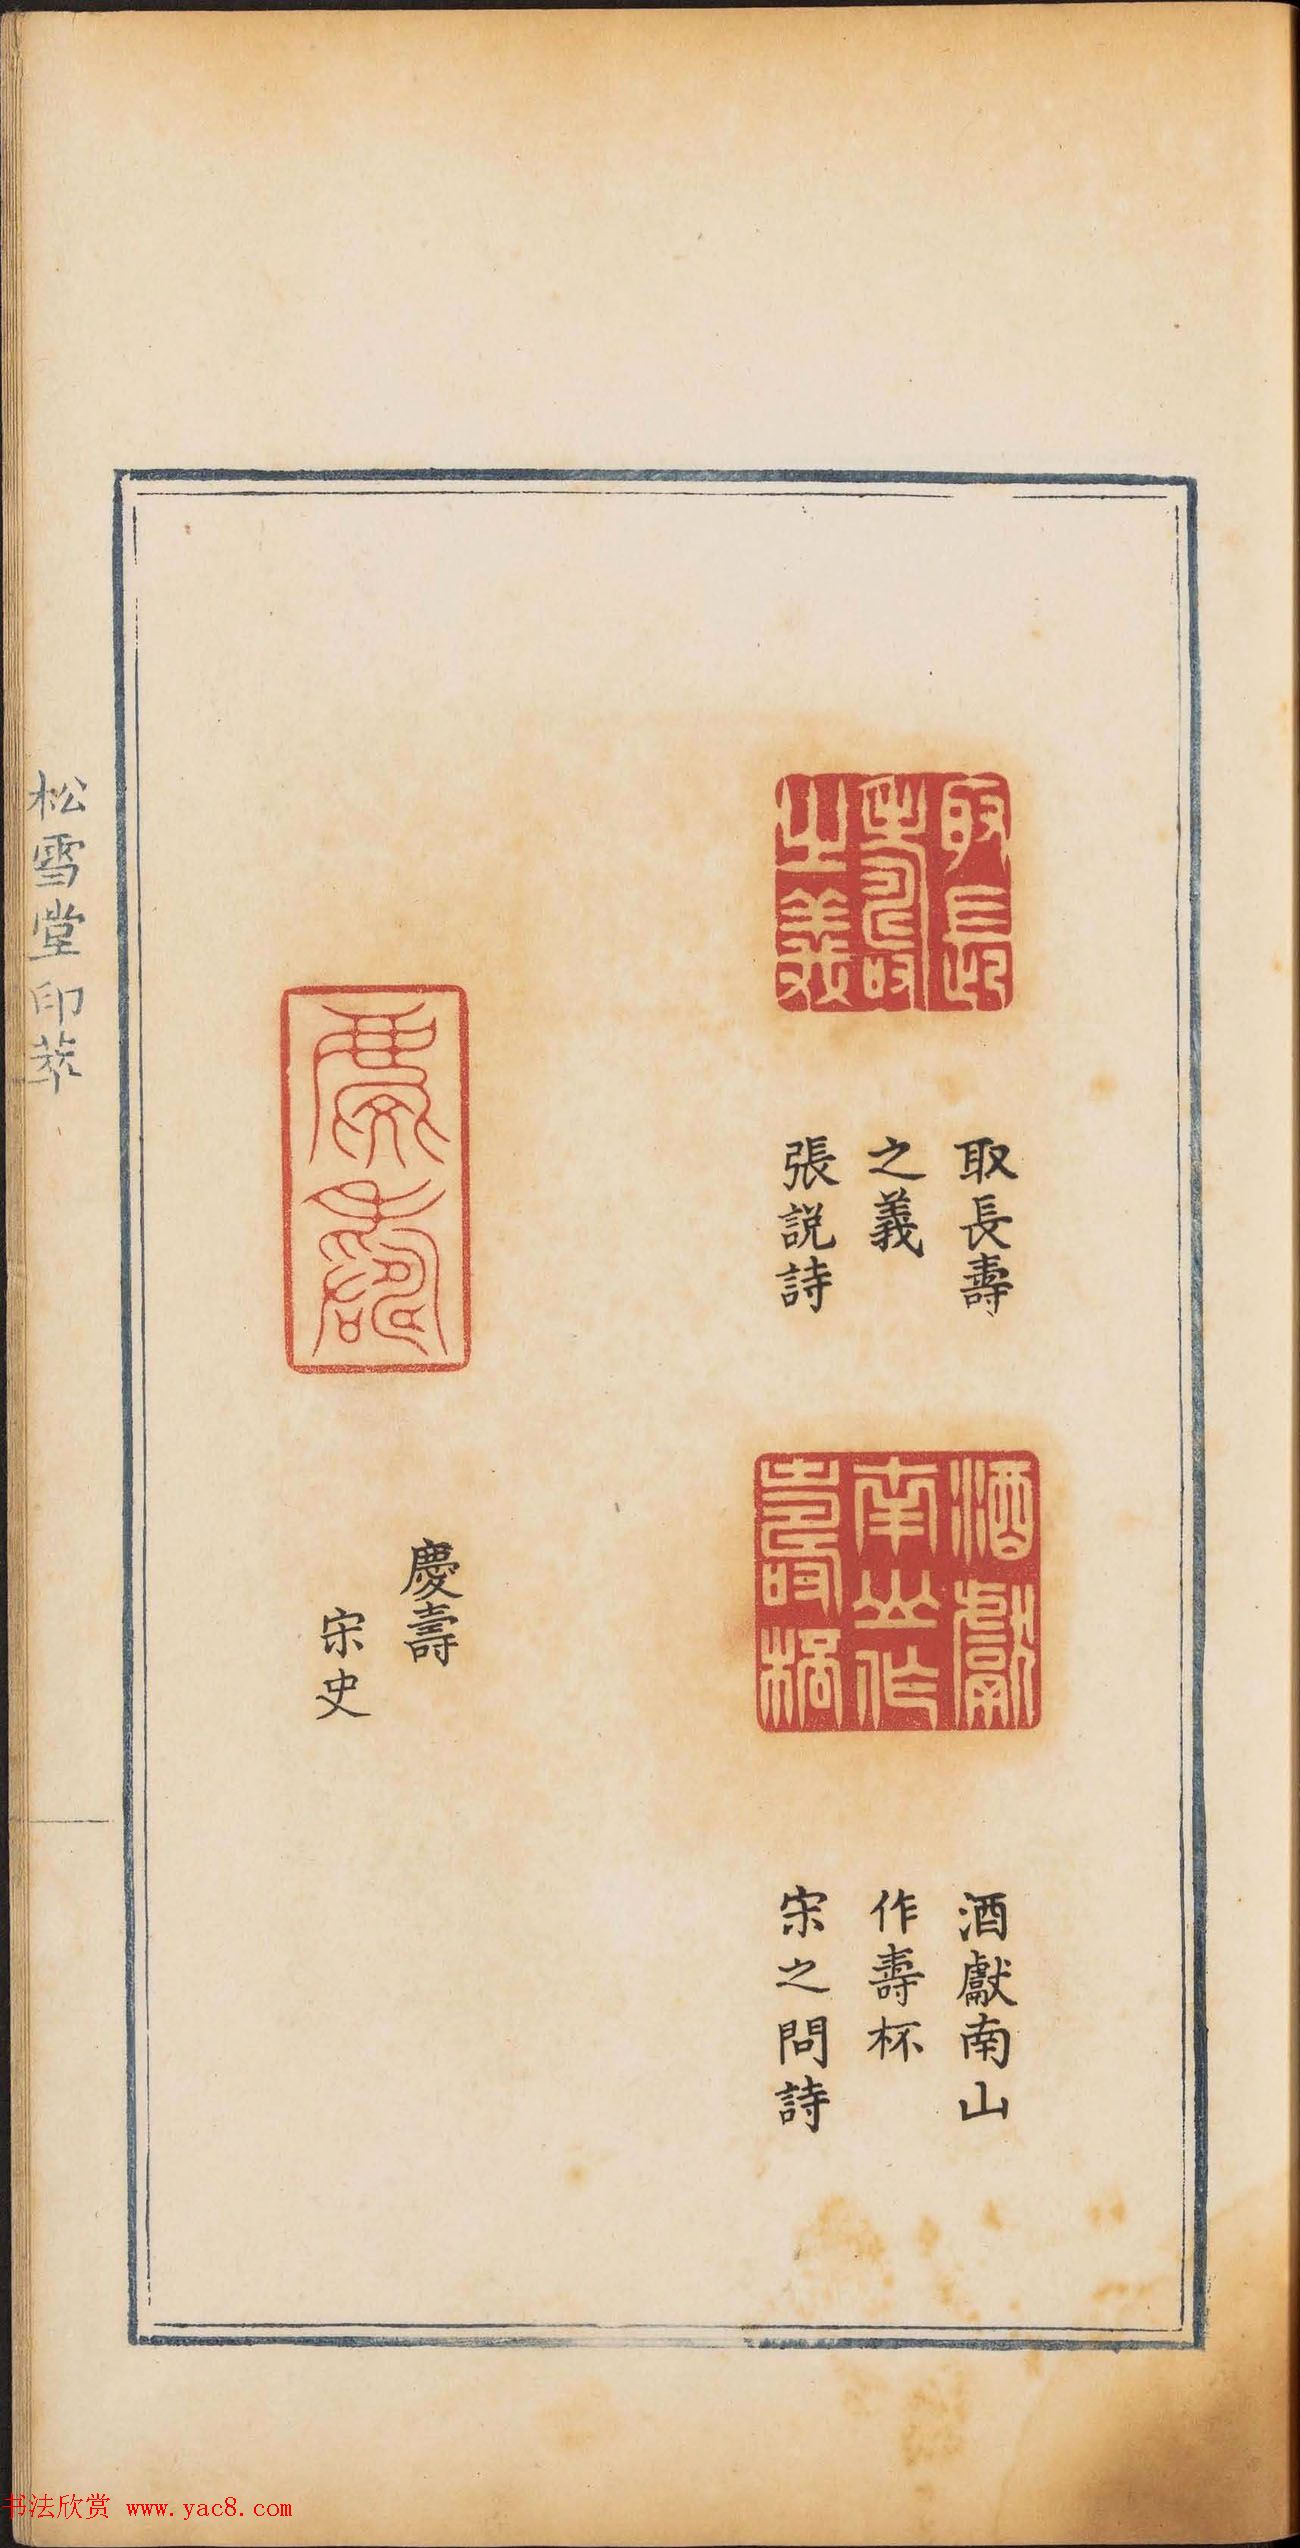 取長壽之義
取長壽
之義
張説詩
酒獻南山作壽桮
酒獻南山
作壽杯
宋之問詩
慶壽
慶壽
宋史
松雪堂印萃
书法欣赏 www.yac8.com